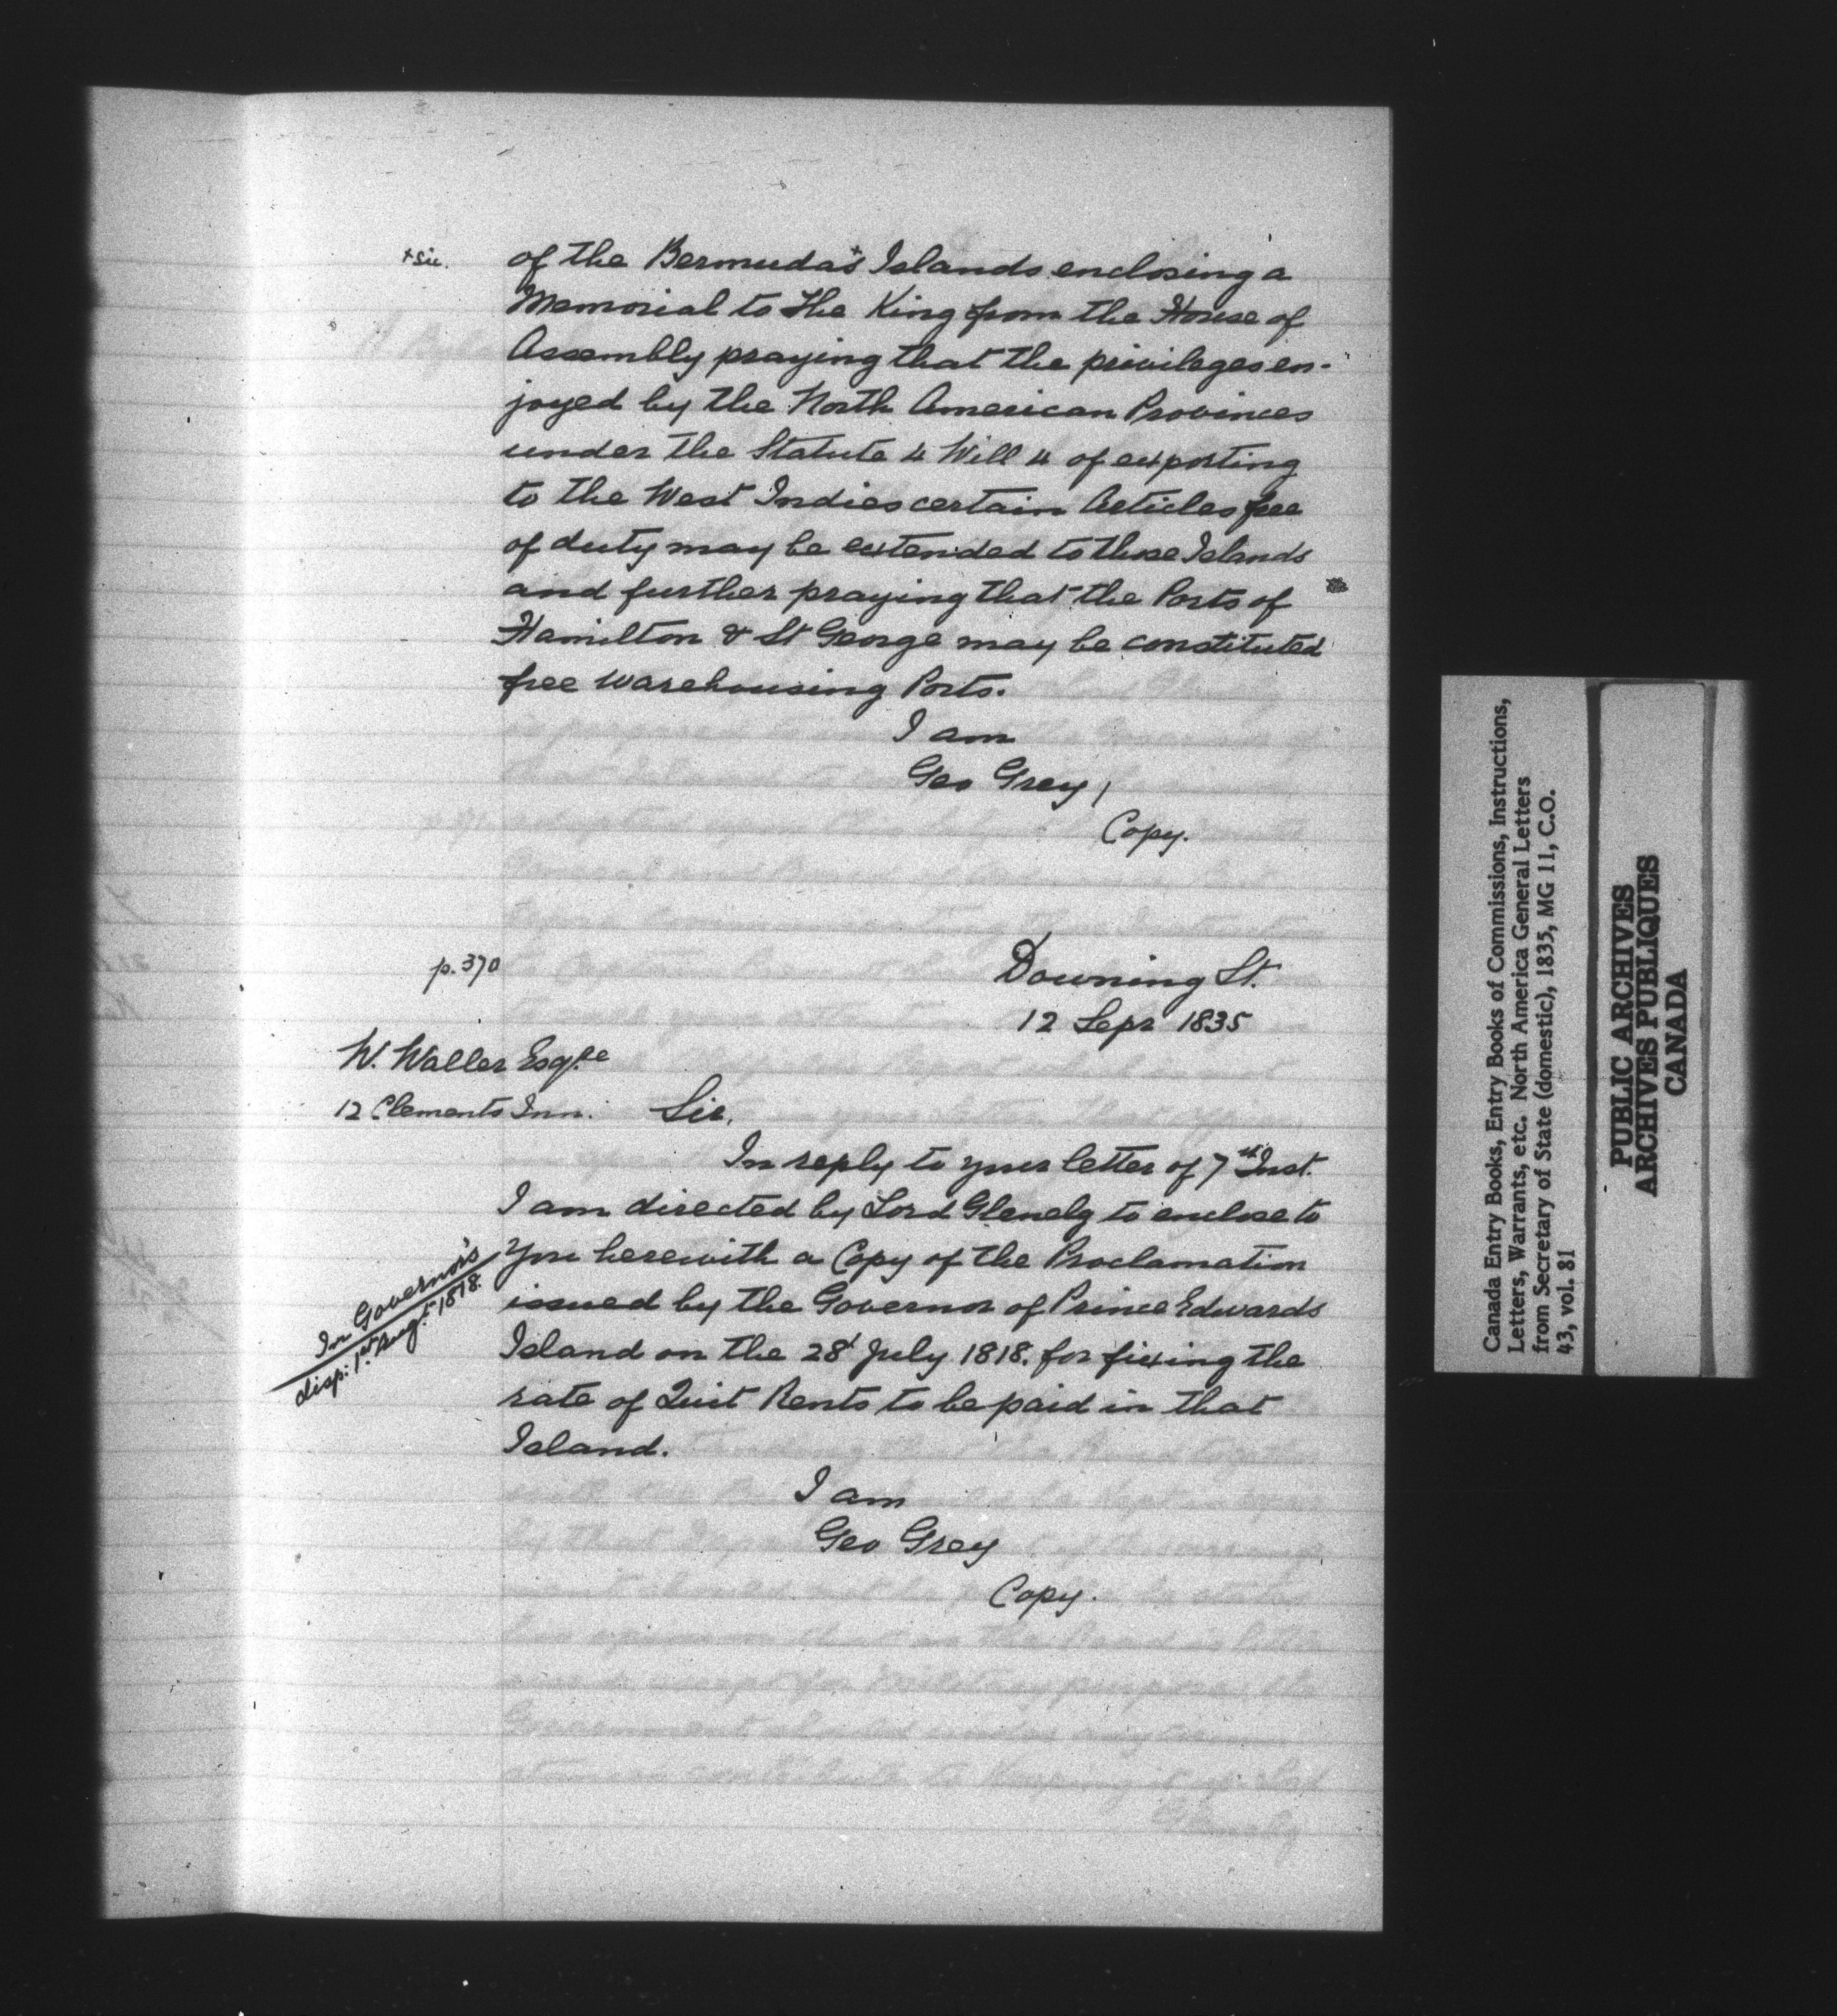 + sic.
of the Bermudas+ Islands enclosing a
Memorial to the King from the House of
Assembly praying that the privileges en-
joyed by the North American Provinces
under the Statute 4 Will 4 of exporting
to the West Indies certain Articles free
of duty may be extended to those Islands
and further praying that the Ports of
Hamilton & St George may be constituted
free warehousing Ports.
I am
Geo Grey
Copy.
p. 370
Downing St.
12 Sepr 1835
W. Waller Esqre
12 Clements Inn.
Sir,
In reply to your letter of 7th Inst.
I am directed by Lord Glenelg to enclose to
You herewith a Copy of the Proclamation
issued by the Governor of Prince Edwards
Island on the 28d July 1818. for fixing the
rate of Quit Rents to be paid in that
Island.
In Governor's
disp: 1st Augt 1818.
I am
Geo Grey
Copy.
Canada Entry Books, Entry Books of Commissions, Instructions,
Letters, Warrants, etc. North America General Letters
from Secretary of State (domestic), 1835, MG 11, C.O.
43, vol. 81
PUBLIC ARCHIVES
ARCHIVES PUBLIQUES
CANADA